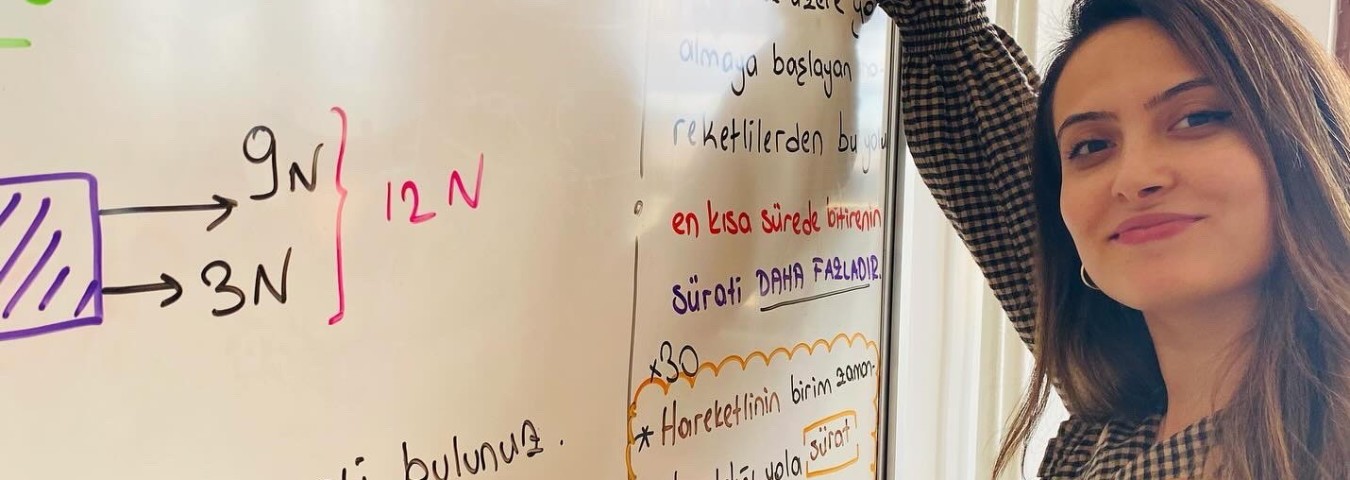 9N
12 N
3N
bulunuz.
üzere
almaya başlayan ha-
reketlilerden bu yolu
en kısa sürede bitirenin
sürati DAHA FAZLADIR.
x30
* Hareketlinin birim zaman-
yola sürat